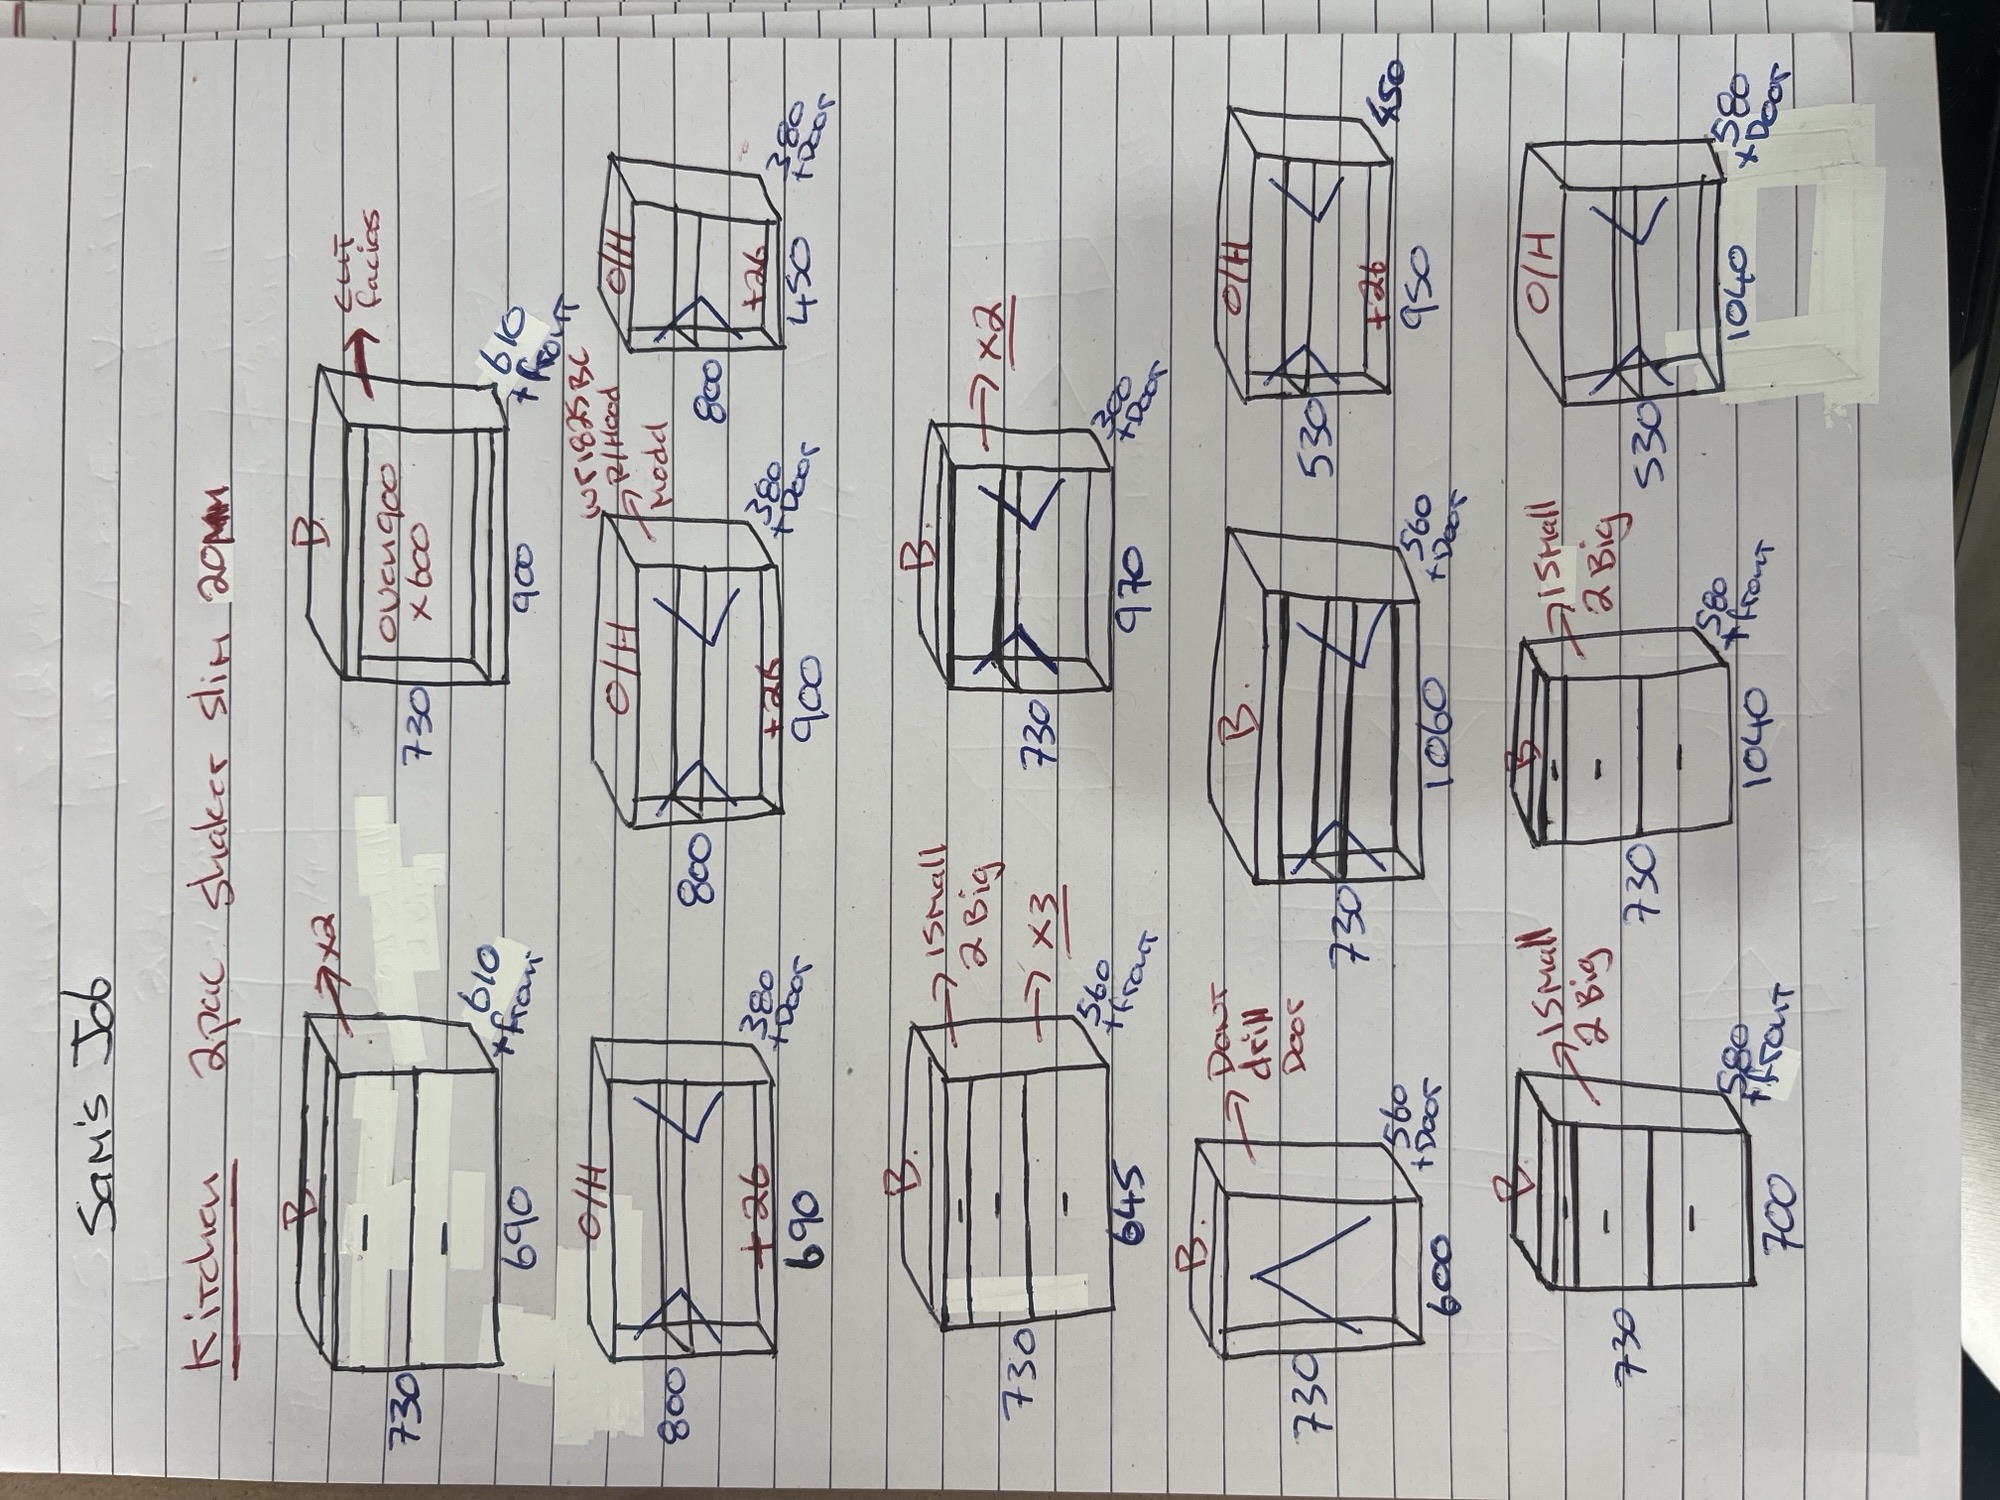 Sam's Job
Kitchen 2pac shaker slim 20MM
B.
→ x2
730
690
610
+ front
B.
→ cut
facias
oven 900
x 600
730
900
610
+ front
O/H
800
+26
690
380
+ Door
O/H
→ R/Hood
Modd
800
+26
900
380
+ Door
O/H
800
+26
450
380
+ Door
B.
→ 1 Small
2 Big
→ x3
730
645
560
+ front
B.
→ x2
730
970
300
+ Door
B.
→ Dont
drill
Door
730
600
560
+ Door
B.
730
1060
560
+ Door
O/H
530
+26
950
450
B.
→ 1 Small
2 Big
730
700
580
+ front
B
→ 1 Small
2 Big
730
1040
580
+ front
O/H
530
1040
580
x Door